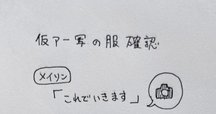 仮アー写の服確認
メイリン
「これでいきます」